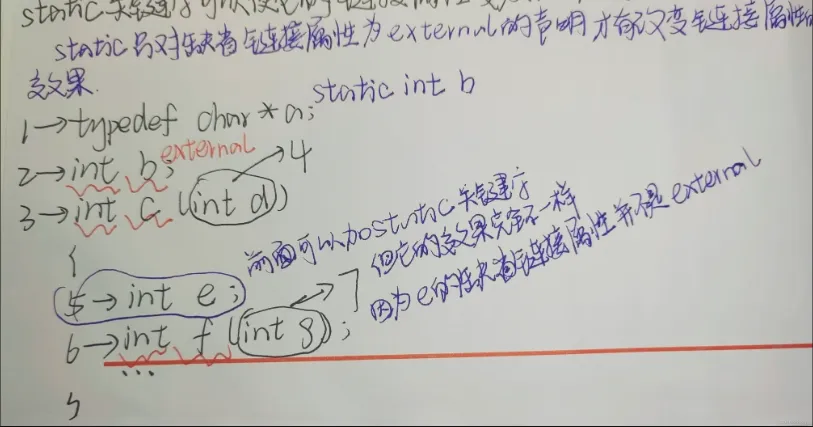 static 关键字可以使它的链接属性变
static 只对缺省链接属性为external的声明才有改变链接属性的
效果.
static int b
1→typedef char * a;
2→int b; external
3→int c (int d) 4
{
5→ int e; 前面可以加static关键字
但它的效果完全不一样
因为e的缺省链接属性并不是external
6→int f (int g); 7
...
}